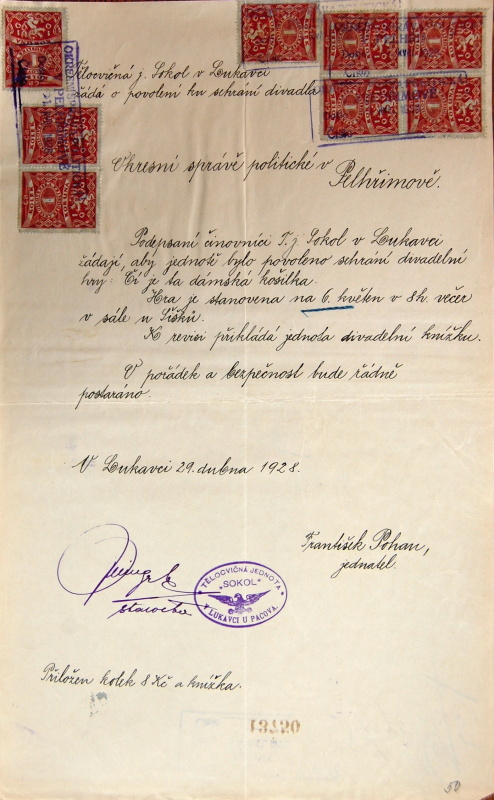 Tělocvičná j. Sokol v Lukavci
žádá o povolení ku sehrání divadla
Okresní správě politické v
Pelhřimově.
Podepsaní činovníci T. j. Sokol v Lukavci
žádají, aby jednotě bylo povoleno sehrání divadelní
hry: Čí je ta dámská košilka.
Hra je stanovena na 6. květen v 8h. večer
v sále u Šišků.
K revisi přikládá jednota divadelní knížku.
O pořádek a bezpečnost bude řádně
postaráno.
V Lukavci 29. dubna 1928.
František Pohan,
jednatel.
starosta
TĚLOCVIČNÁ JEDNOTA
"SOKOL"
V LUKAVCI U PACOVA.
Přiložen kolek 8 Kč a knížka.
13420
50